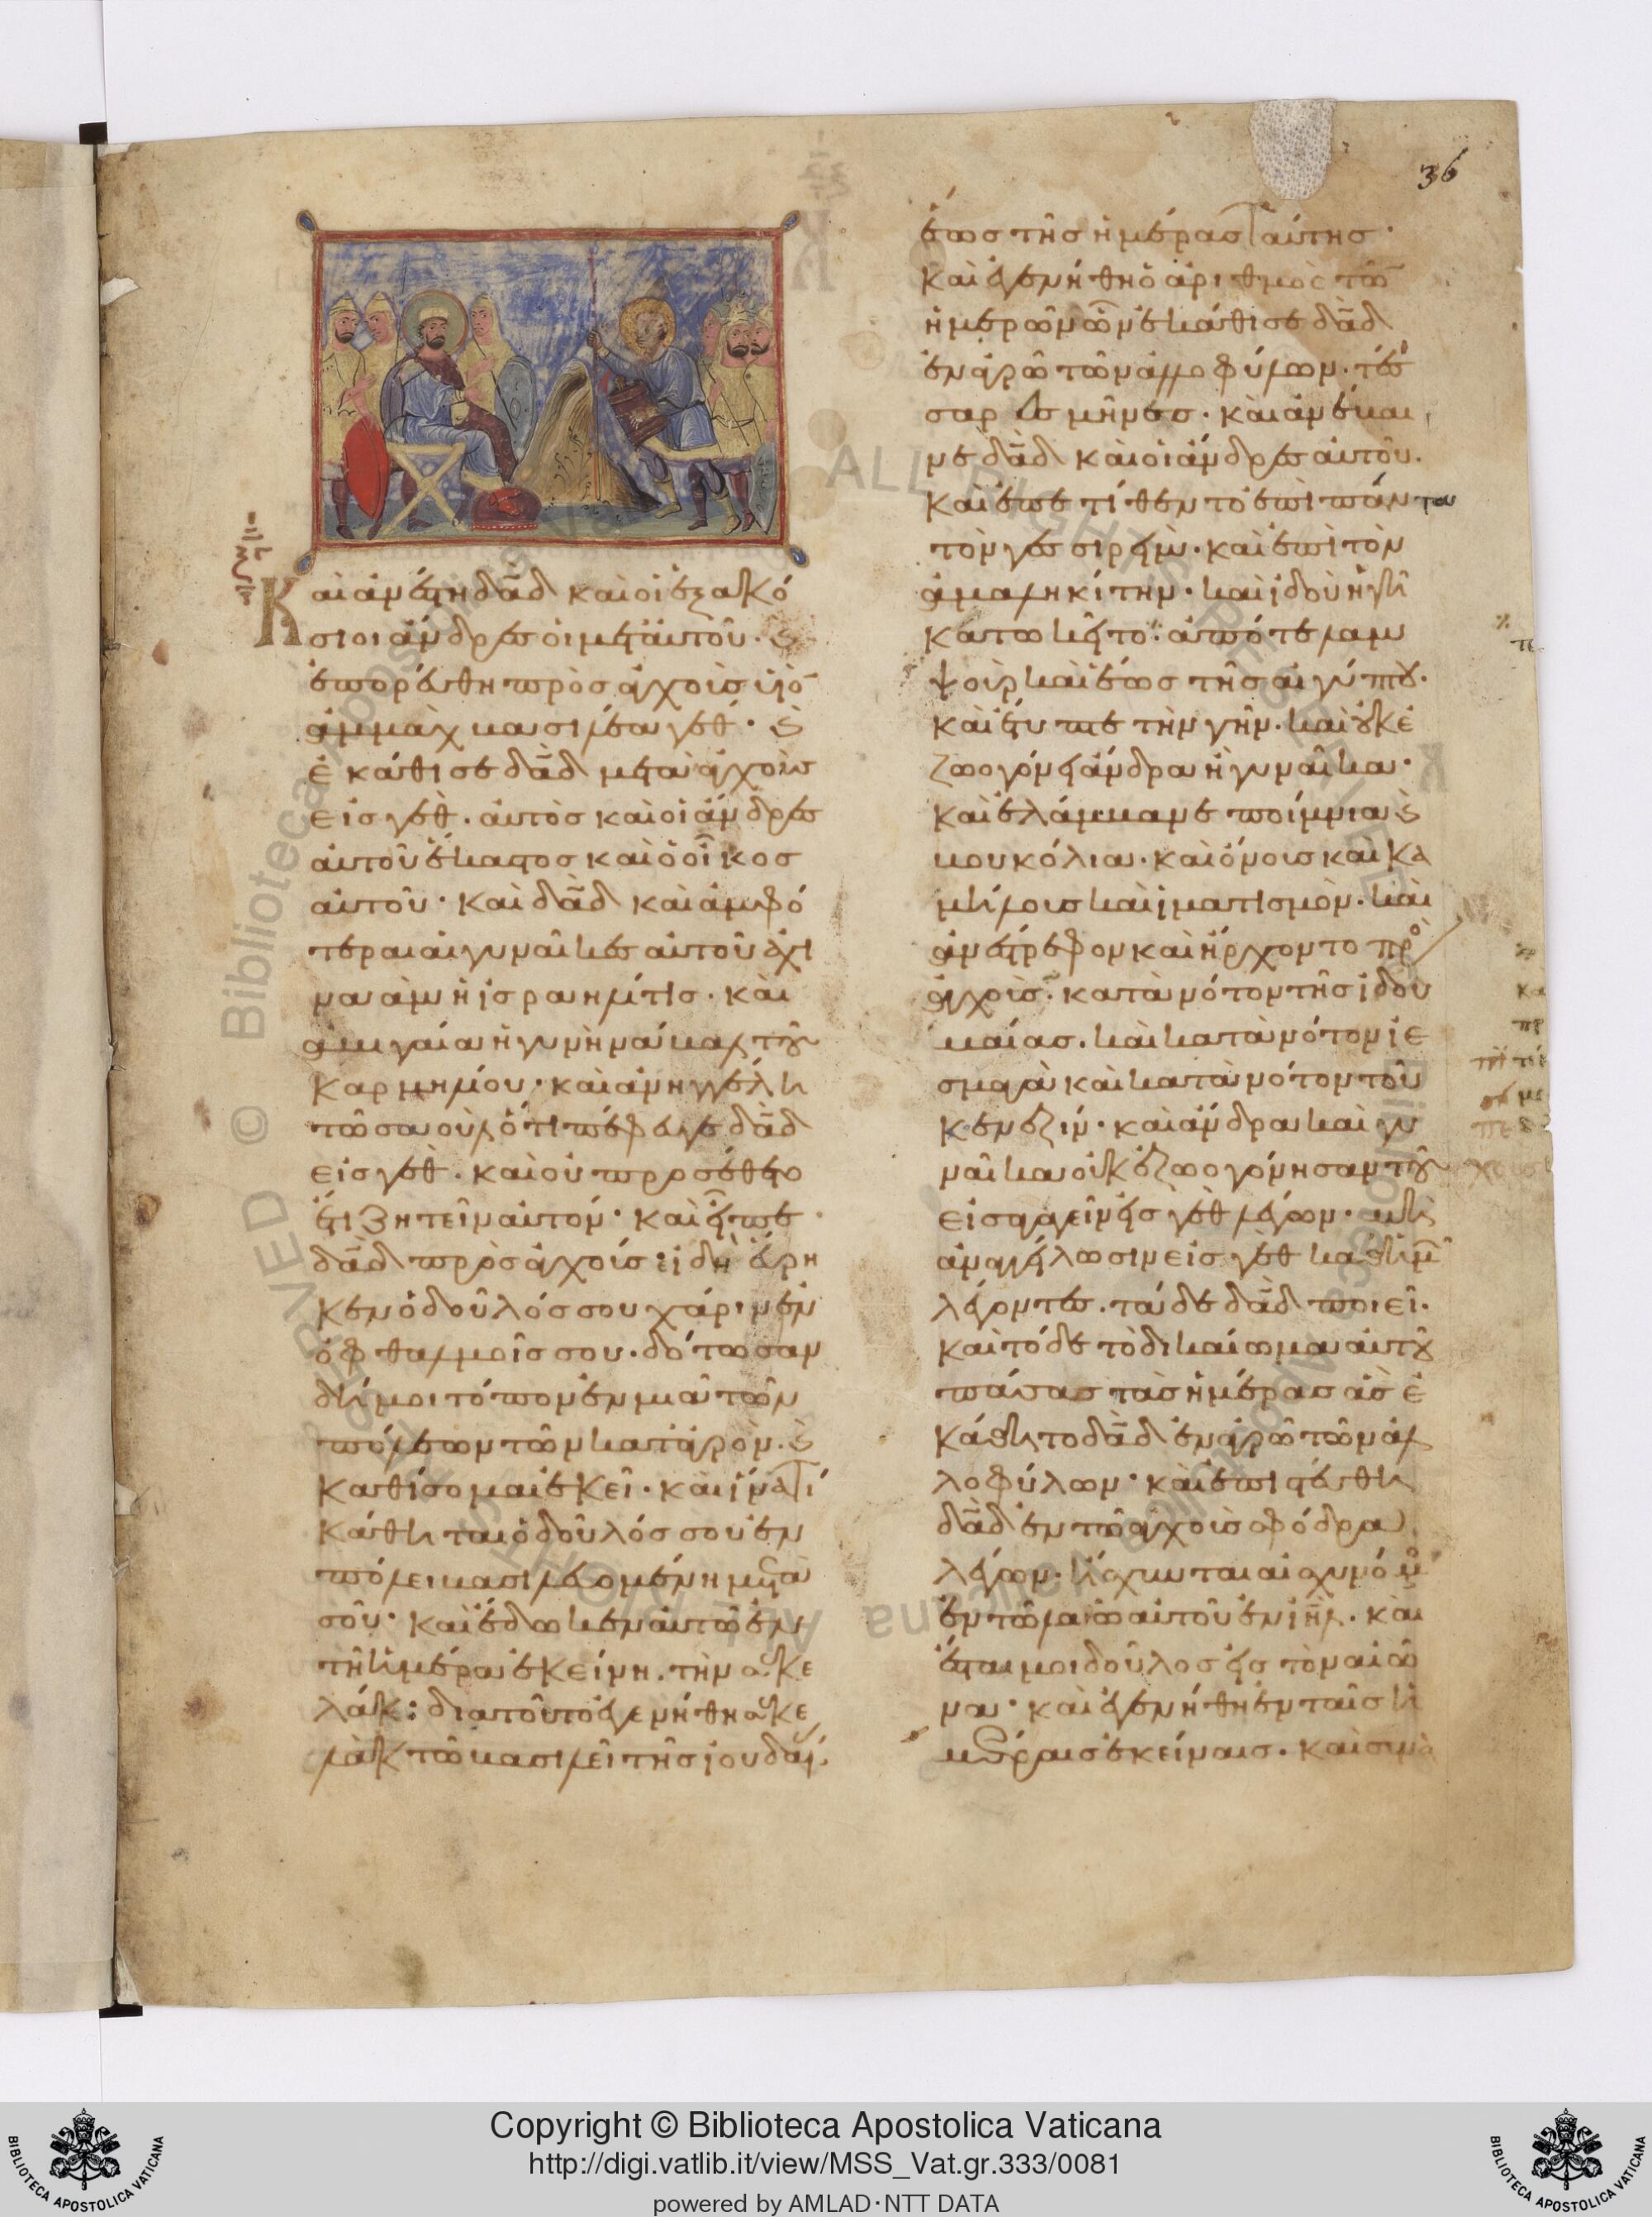 36
Καὶ ἀνέστη δᾱδ καὶ οἱ ἑξακό
σιοι ἄνδρες οἱ μετ' αὐτοῦ· καὶ
ἐπορεύθη πρὸς ἀγχοὺς υἱὸ
ἀμμὰχ βασιλέα γέθ· καὶ
ἐκάθισε δᾱδ μετὰ ἀγχοὺς
εἰς γὲθ. αὐτὸς καὶ οἱ ἄνδρες
αὐτοῦ ἕκαστος καὶ ὁ οἶκος
αὐτοῦ· καὶ δᾱδ καὶ ἀμφό
τεραι αἱ γυναῖκες αὐτοῦ ἀχι
ναὰμ ἡ ἰσραηλίτις. καὶ
ἀβιγαία ἡ γυνὴ νάβαλ τοῦ
καρμηλίου· καὶ ἀνηγγέλη
τῶ σαοὺλ ὅτι πέφευγε δᾱδ
εἰς γέθ. καὶ οὐ προσέθετο
ἔτι ζητεῖν αὐτόν· καὶ εἶπε
δᾱδ πρὸς ἀγχούς· εἰ δὴ εὕρη
κεν ὁ δοῦλός σου χάριν ἐν
ὀφθαλμοῖς σου. δότωσαν
δή μοι τόπον ἐν μιᾶ τῶν
πόλεων τῶν κατ' ἀγρὸν. καὶ
καθίσομαι ἐκεῖ. καὶ ἱνατί
κάθηται ὁ δοῦλός σου ἐν
πόλει βασιλευομένη μετὰ
σοῦ· καὶ ἔδωκεν αὐτῶ ἐν
τῆ ἡμέρα ἐκείνη. τὴν σεκε
λάκ: διατοῦτο ἐγενήθη σεκε
λὰκ τῶ βασιλεῖ τῆς ἰουδαί
ἕως τῆς ἡμέρας ταύτης·
καὶ ἐγενήθη ὁ ἀριθμὸς τῶ
ἡμερῶν ὧν ἐκάθισε δᾱδ
ἐν ἀγρῶ τῶν ἀλλοφύλων. τέσ
σαρες μῆνες. καὶ ἀνέβαι
νε δᾱδ καὶ οἱ ἄνδρες αὐτοῦ.
καὶ ἐπετίθεντο ἐπὶ πάντα
τὸν γεσσιρεὶμ. καὶ ἐπὶ τὸν
ἀμαληκίτην. καὶ ἰδοὺ ἡ γῆ
κατωκεῖτο: ἀπὸ τελαμ
ψοὺρ καὶ ἕως τῆς αἰγύπτου.
καὶ ἔτυπτε τὴν γῆν. καὶ οὐκ ἐ
ζωογόνει ἄνδρα ἢ γυναῖκα·
καὶ ἐλάμβανε ποίμνια καὶ
βουκόλια. καὶ ὄνους καὶ κα
μήλους καὶ ἱματισμὸν. καὶ
ἀνέστρεφον καὶ ἤρχοντο πρὸ
ἀγχοὺς. κατὰ νότον τῆς ἰδου
μαίας. καὶ κατὰ νότον ἰε
σμεγὰ καὶ κατὰ νότον τοῦ
κενεζίν. καὶ ἄνδρα καὶ γυ
ναῖκα οὐκ ἐζωογόνησαν τοῦ
εἰσαγαγεῖν εἰς γὲθ λέγων. μὴ
ἀναγγείλωσιν εἰς γὲθ καθ' ἡμῶν
λέγοντες. τάδε δᾱδ ποιεῖ.
καὶ τόδε τὸ δικαίωμα αὐτοῦ
πάσας τὰς ἡμέρας ἃς ἐ
κάθητο δᾱδ ἐν ἀγρῶ τῶν ἀλ
λοφύλων· καὶ ἐπιστεύθη
δᾱδ ἐν τῶ ἀγχοὺς σφόδρα
λέγων. ᾔσχυνται αἰσχυνόμ
ἐν τῶ λαῶ αὐτοῦ ἐν ιη̄λ. καὶ
ἔσται μοι δοῦλος εἰς τὸν αἰῶ
να· καὶ ἐγενήθη ἐν ταῖς ἡ
μέραις ἐκείναις. καὶ συνα
ALL RIGHTS RESERVED © Biblioteca Apostolica Vaticana
Copyright © Biblioteca Apostolica Vaticana
http://digi.vatlib.it/view/MSS_Vat.gr.333/0081
powered by AMLAD·NTT DATA
BIBLIOTECA APOSTOLICA VATICANA
BIBLIOTECA APOSTOLICA VATICANA